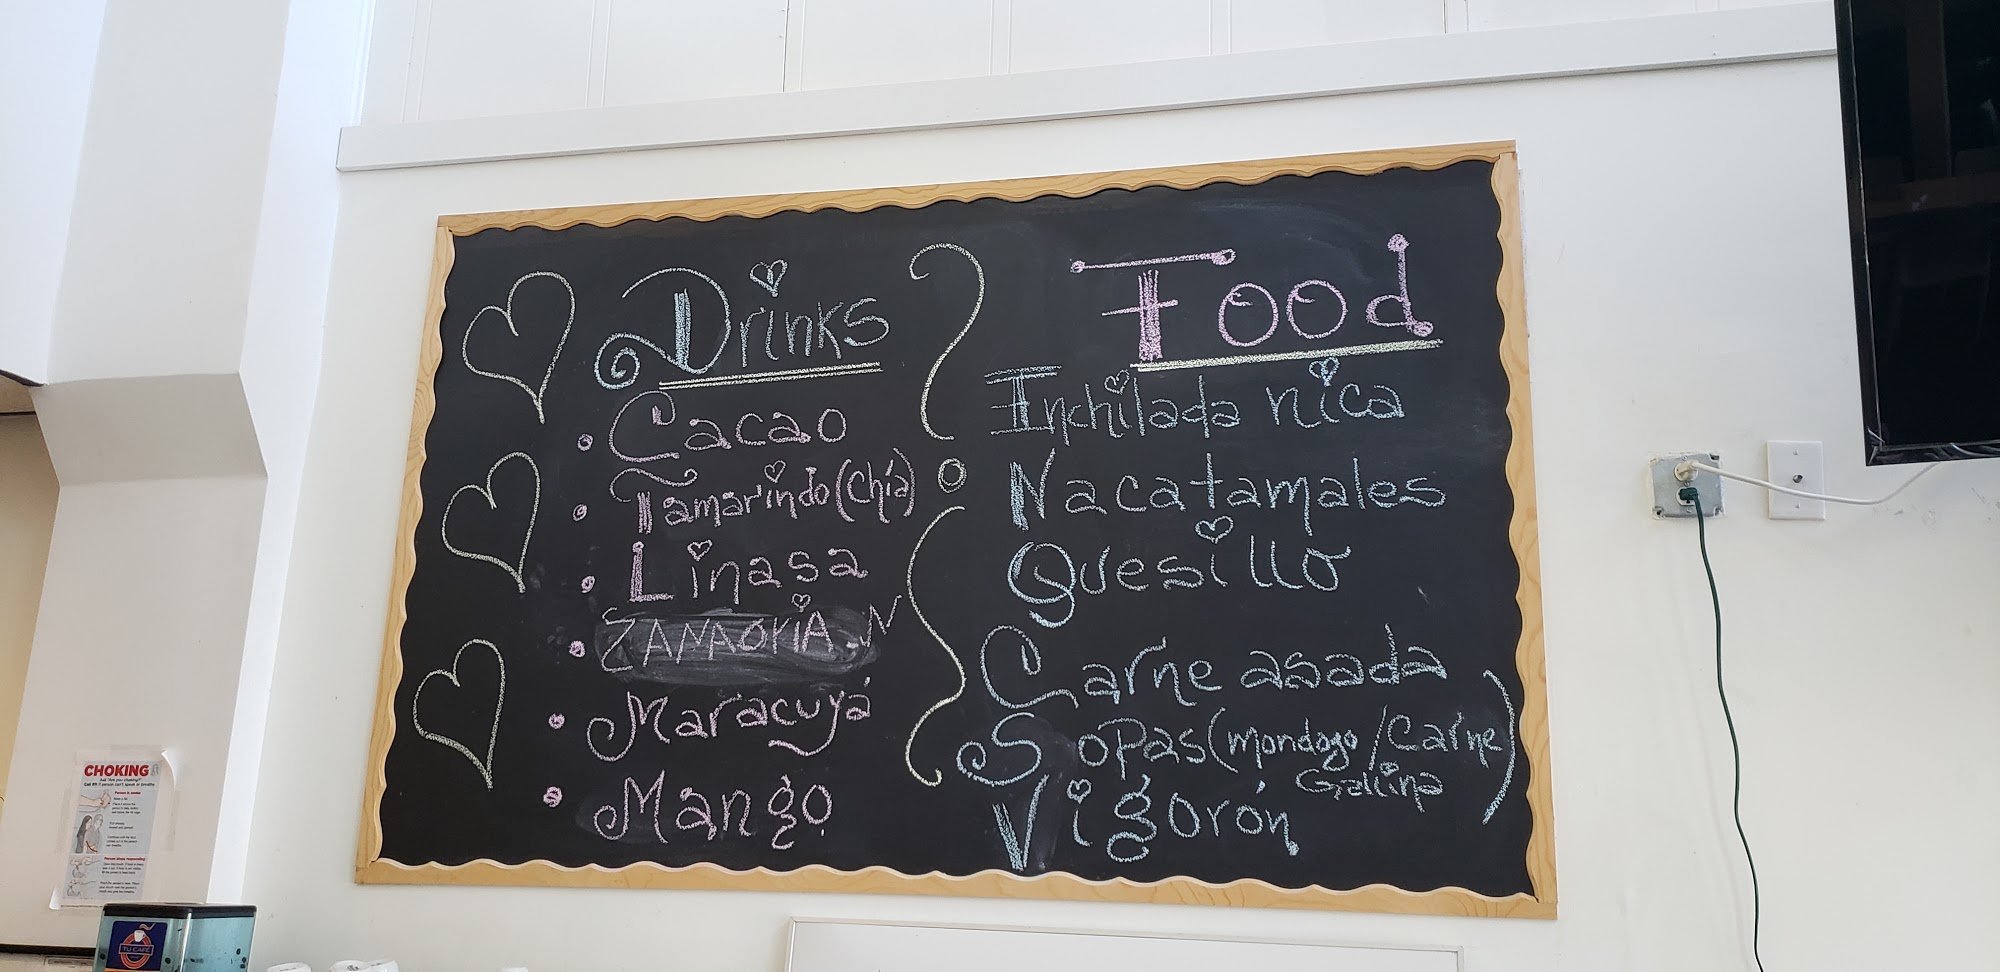 Drinks
Cacao
Tamarindo (chía)
Linasa
ZANAORIA N
Maracuyá
Mango
Food
Inchilada nica
Nacatamales
Quesillo
Carne asada
Sopas (mondogo / Carne
Gallina)
Vigorón
CHOKING
TU CAFÉ